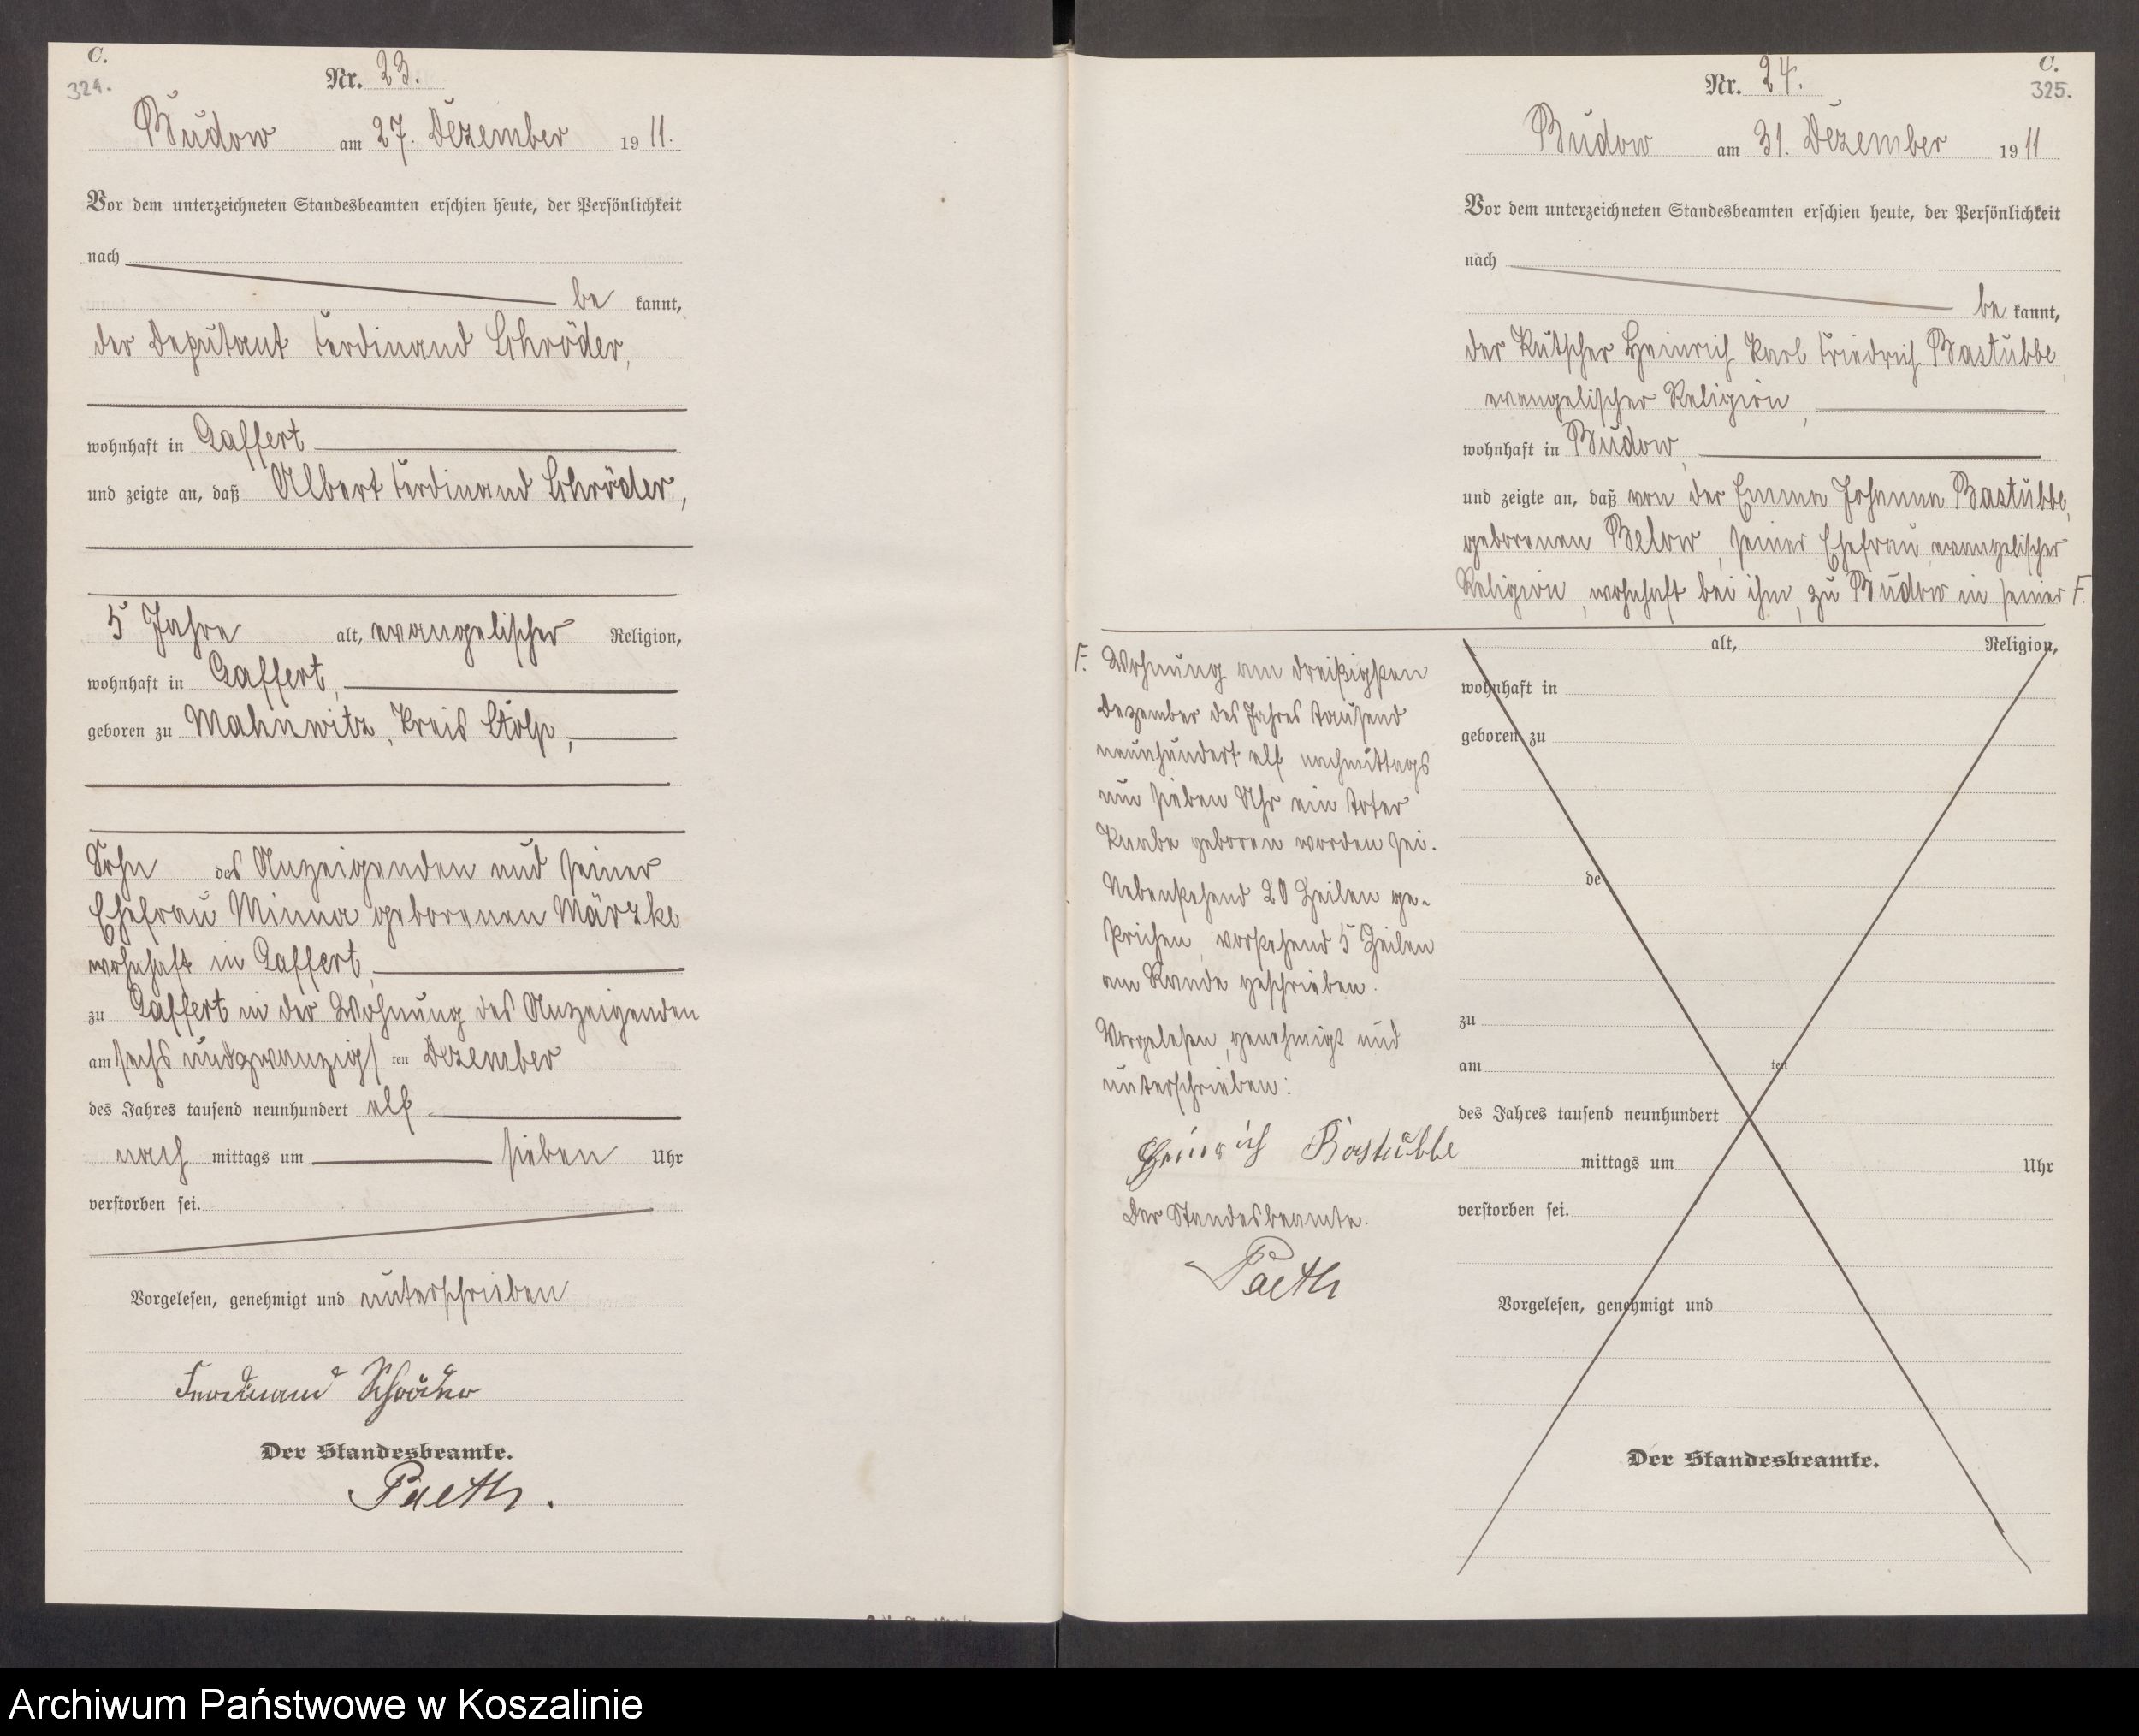 C.
324.
Nr. 23.
Budow am 27. Dezember 1911.
Vor dem unterzeichneten Standesbeamten erschien heute, der Persönlichkeit
nach
be kannt,
der Deputant Ferdinand Schröder,
wohnhaft in Gaffert
und zeigte an, daß Albert Ferdinand Schröder,
5 Jahre alt, evangelischer Religion,
wohnhaft in Gaffert,
geboren zu Mahnwitz, Kreis Stolp,
Sohn des Anzeigenden und seiner
Ehefrau Minna geborenen Märzke
wohnhaft in Gaffert,
zu Gaffert in der Wohnung des Anzeigenden
am sechsundzwanzigsten Dezember
des Jahres tausend neunhundert elf
nach mittags um sieben Uhr
verstorben sei.
Vorgelesen, genehmigt und unterschrieben
Ferdinand Schröder
Der Standesbeamte.
Paeth.
C.
325.
Nr. 24.
Budow am 31. Dezember 1911
Vor dem unterzeichneten Standesbeamten erschien heute, der Persönlichkeit
nach
be kannt,
der Kutscher Heinrich Karl Friedrich Bastubbe,
evangelischer Religion,
wohnhaft in Budow,
und zeigte an, daß von der Emma Johanna Bastubbe,
geborenen Below, seiner Ehefrau evangelischer
Religion, wohnhaft bei ihm, zu Budow in seiner F.
F. Wohnung am dreißigsten
Dezember des Jahres tausend
neunhundert elf nachmittags
um sieben Uhr ein toter
Knabe geboren worden sei.
Nebenstehend 20 Zeilen ge-
strichen, vorstehend 5 Zeilen
am Rande geschrieben.
Vorgelesen, genehmigt und
unterschrieben:
Heinrich Bastubbe
Der Standesbeamte.
Paeth
alt, Religion,
wohnhaft in
geboren zu
de
zu
am ten
des Jahres tausend neunhundert
mittags um Uhr
verstorben sei.
Vorgelesen, genehmigt und
Der Standesbeamte.
Archiwum Państwowe w Koszalinie